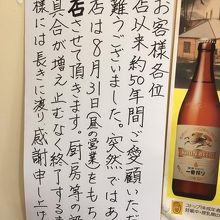 お客様各位
店以来約50年間ご愛顧いただ
難うございました。突然ではあ
店は8月31日(昼の営業をもち
店させて頂きます。厨房等の設
具合が増え止むなく終了する
様には長きに渡り感謝申し上げ
KIRIN
一番搾り